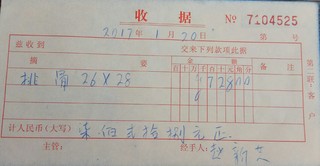 收 据 № 7104525
2017年1月20日 第 号
兹收到 交来下列款项此据
摘 要 金 额 备 注
百十万千百十元角分
26×28 72800
计人民币(大写) 柒佰贰拾捌元正
主管: 经手人: 赵新